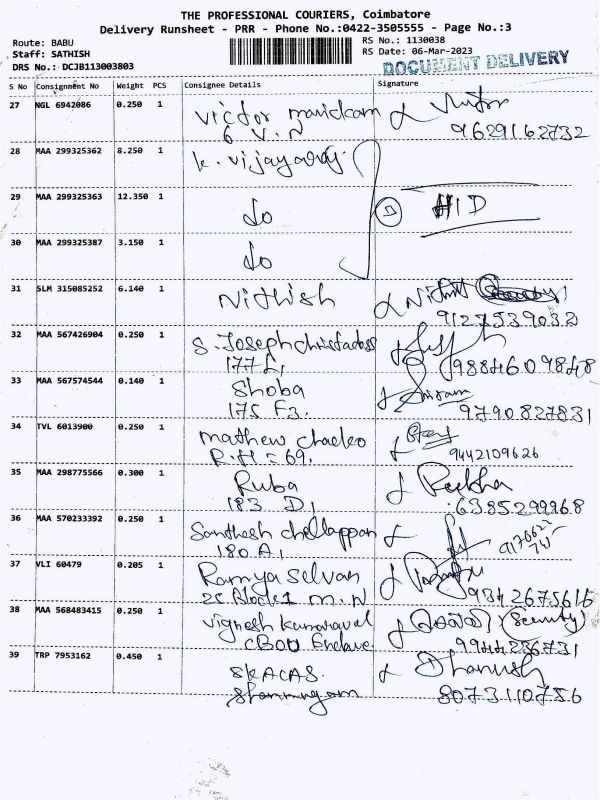 THE PROFESSIONAL COURIERS, Coimbatore
Delivery Runsheet - PRR - Phone No.:0422-3505555 - Page No.:3
Route: BABU
Staff: SATHISH
DRS No.: DCJB113003803
RS No.: 1130038
RS Date: 06-Mar-2023
DOCUMENT DELIVERY
S No Consignment No Weight PCS Consignee Details Signature
27 NGL 6942086 0.250 1 Victor
6 V.N 9629162732
28 MAA 299325362 8.250 1 K. Vijayaraj
29 MAA 299325363 12.350 1 do HID
30 MAA 299325387 3.150 1 do
31 SLM 315085252 6.140 1 Nithish
9127539032
32 MAA 567426904 0.250 1 S. Joseph
177 L, 9884609848
33 MAA 567574544 0.140 1 Shoba Sriram
175 F3. 9790827831
34 TVL 6013900 0.250 1 Mathew
R.H = 69. 9442109626
35 MAA 298775566 0.300 1 Ruba Rekha
183 D, 6385299968
36 MAA 570233392 0.250 1 Santhosh chellappan
180.A,
37 VLI 60479 0.205 1 Ramya Selvan
Block 1 M.N 9342675616
38 MAA 568483415 0.250 1 Vignesh Kumaravel (Security)
Enclave 9944236731
39 TRP 7953162 0.450 1 SKACAS. Dhanush
Shanmugam 8073110756